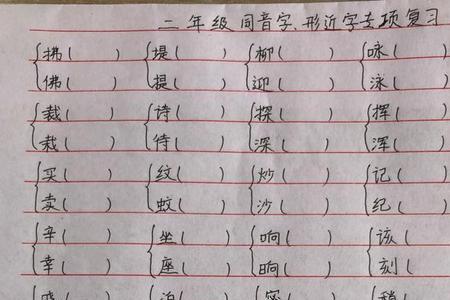 二年级同音字、形近字专项复习
拂( ) 堤( ) 柳( ) 咏(
佛( ) 提( ) 迎( ) 泳(
裁( ) 诗( ) 探( ) 挥(
栽( ) 待( ) 深( ) 浑(
买( ) 纹( ) 炒( ) 记(
卖( ) 蚊( ) 沙( ) 纪(
辛( ) 坐( ) 响( ) 该(
幸( ) 座( ) 晌( ) 刻(